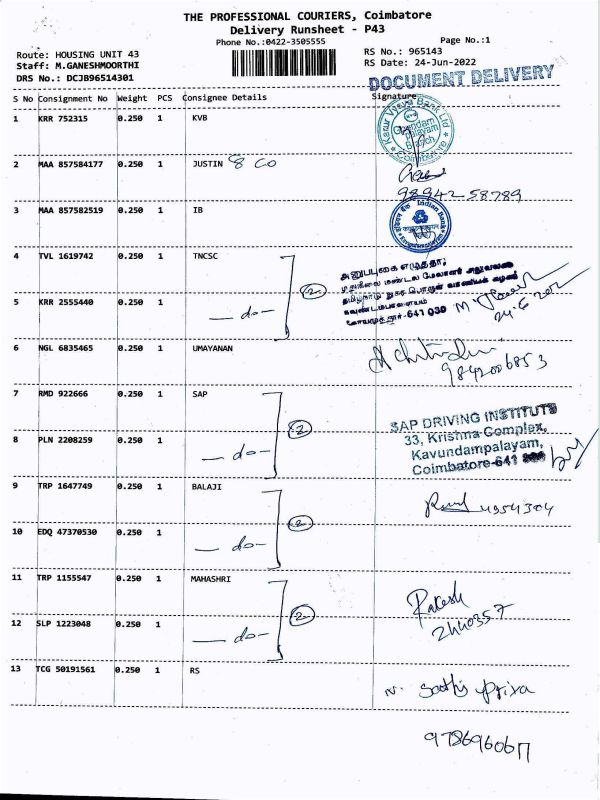 THE PROFESSIONAL COURIERS, Coimbatore
Delivery Runsheet - P43
Phone No.:0422-3505555
Page No.:1
Route: HOUSING UNIT 43
RS No.: 965143
Staff: M.GANESHMOORTHI
RS Date: 24-Jun-2022
DRS No.: DCJB96514301
DOCUMENT DELIVERY
S No Consignment No Weight PCS Consignee Details Signature
1 KRR 752315 0.250 1 KVB
Karur Vysya Bank Ltd
Branch
Coimbatore
2 MAA 857584177 0.250 1 JUSTIN & CO
98942 58789
3 MAA 857582519 0.250 1 IB
Indian Bank
4 TVL 1619742 0.250 1 TNCSC
2
5 KRR 2555440 0.250 1 — do —
அனுப்புகை எழுத்தர்,
முதுநிலை மண்டல மேலாளர் அலுவலகம்
தமிழ்நாடு நுகர் பொருள் வாணிபக் கழகம்
கவுண்டம்பாளையம்
கோயமுத்தூர்-641 030
24.6.2022
6 NGL 6835465 0.250 1 UMAYANAN
9842006853
7 RMD 922666 0.250 1 SAP
2
8 PLN 2208259 0.250 1 — do —
SAP DRIVING INSTITUTE
33, Krishna Complex,
Kavundampalayam,
Coimbatore-641
9 TRP 1647749 0.250 1 BALAJI
2
4954304
10 EDQ 47370530 0.250 1 — do —
11 TRP 1155547 0.250 1 MAHASHRI
2
Rakesh
2440357
12 SLP 1223048 0.250 1 — do —
13 TCG 50191561 0.250 1 RS
N. Sathiyapriya
9786960617